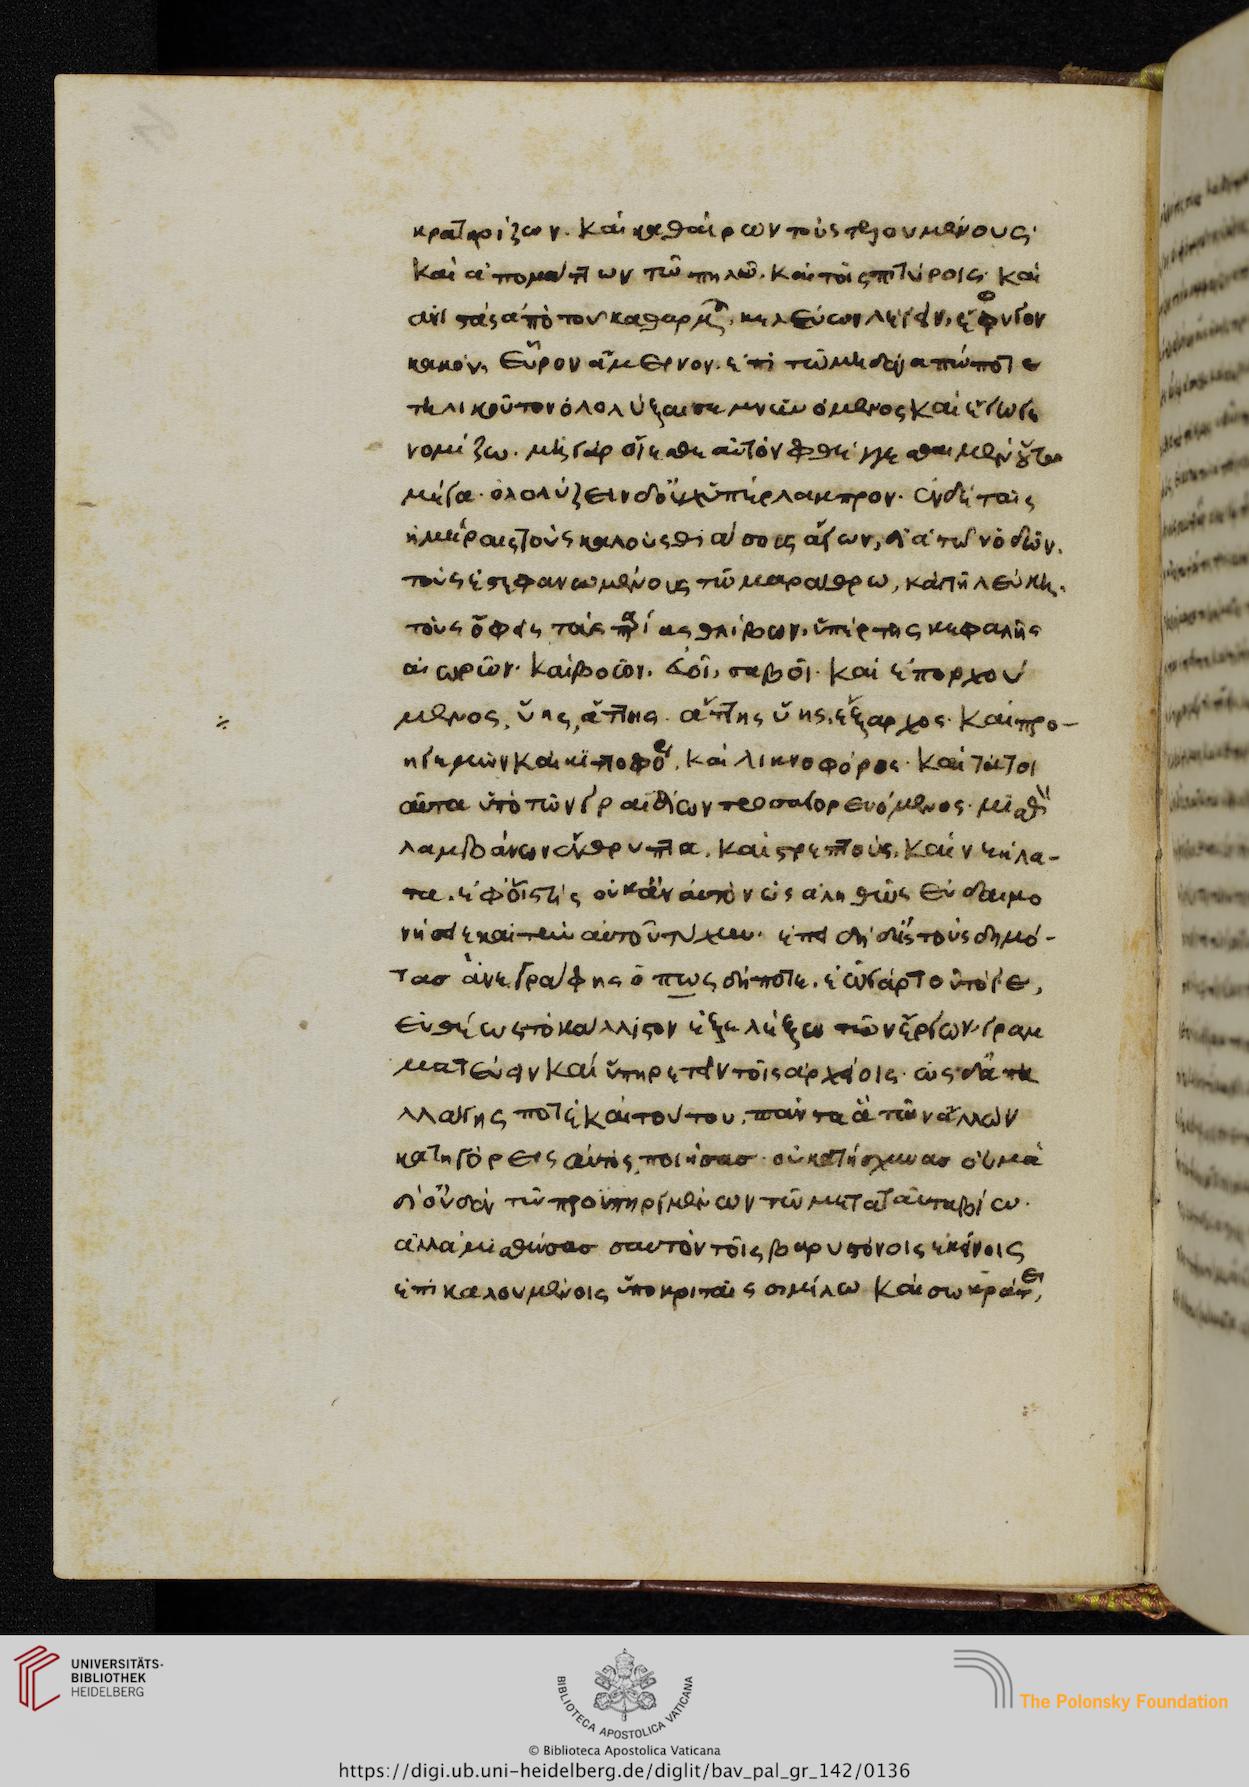 κρατηρίζων. καὶ καθαίρων τοὺς τελουμένους·
καὶ ἀπομάττων τῷ πηλῷ. καὶ τοῖς πιτύροις. καὶ
ἀνιστὰς ἀπὸ τοῦ καθαρμοῦ, κελεύων λέγειν, ἔφυγον
κακόν, εὗρον ἄμεινον. ἐπὶ τῷ μηδένα πώποτε
τηλικοῦτον ὀλολύξαι σεμνυνόμενος καὶ ἔγωγε
νομίζω. μὴ γὰρ οἴεσθε αὐτὸν φθέγγεσθαι μὲν οὕτω
μέγα. ὀλολύζειν δ' οὐχ ὑπέρλαμπρον. ἐν δὲ ταῖς
ἡμέραις τοὺς καλοὺς θιάσους ἄγων, διὰ τῶν ὁδῶν.
τοὺς ἐστεφανωμένους τῷ μαράθρῳ, καὶ τῇ λεύκῃ.
τοὺς ὄφεις τοὺς παρείας θλίβων. ὑπὲρ τῆς κεφαλῆς
αἰωρῶν. καὶ βοῶν. εὐοῖ, σαβοῖ. καὶ ἐπορχού
μενος, ὕης, ἄττης. ἄττης ὕης. ἔξαρχος. καὶ προ-
ηγεμὼν καὶ κιττοφόρος, καὶ λικνοφόρος. καὶ τοιαῦτα
ὑπὸ τῶν γραιδίων προσαγορευόμενος. μισθὸν
λαμβάνων ἔνθρυπτα. καὶ στρεπτοὺς. καὶ νεήλα-
τα. ἐφ' οἷς τίς οὐκ ἂν αὑτὸν ὡς ἀληθῶς εὐδαιμο
νίσειε καὶ τὴν αὑτοῦ τύχην. ἐπειδὴ δ' εἰς τοὺς δημό-
τας ἐνεγράφης ὅπως δήποτε. ἐῶ γὰρ τοῦτό γε,
εὐθέως τὸ κάλλιστον ἐξελέξω τῶν ἔργων. γραμ
ματεύειν καὶ ὑπηρετεῖν τοῖς ἀρχιδίοις. ὡς δ' ἀπη
λλάγης ποτὲ καὶ τούτου. πάντα ἃ τῶν ἄλλων
κατηγορεῖς αὐτὸς ποιήσας. οὐ κατῄσχυνας οὐ μὰ
δί' οὐδὲν τῶν προϋπηργμένων τῷ μετὰ ταῦτα βίῳ.
ἀλλὰ μισθώσας σαυτὸν τοῖς βαρυστόνοις ἐκείνοις
ἐπικαλουμένοις ὑποκριταῖς σιμίλῳ καὶ σωκράτει,
UNIVERSITÄTS-
BIBLIOTHEK
HEIDELBERG
BIBLIOTECA APOSTOLICA VATICANA
The Polonsky Foundation
© Biblioteca Apostolica Vaticana
https://digi.ub.uni-heidelberg.de/diglit/bav_pal_gr_142/0136